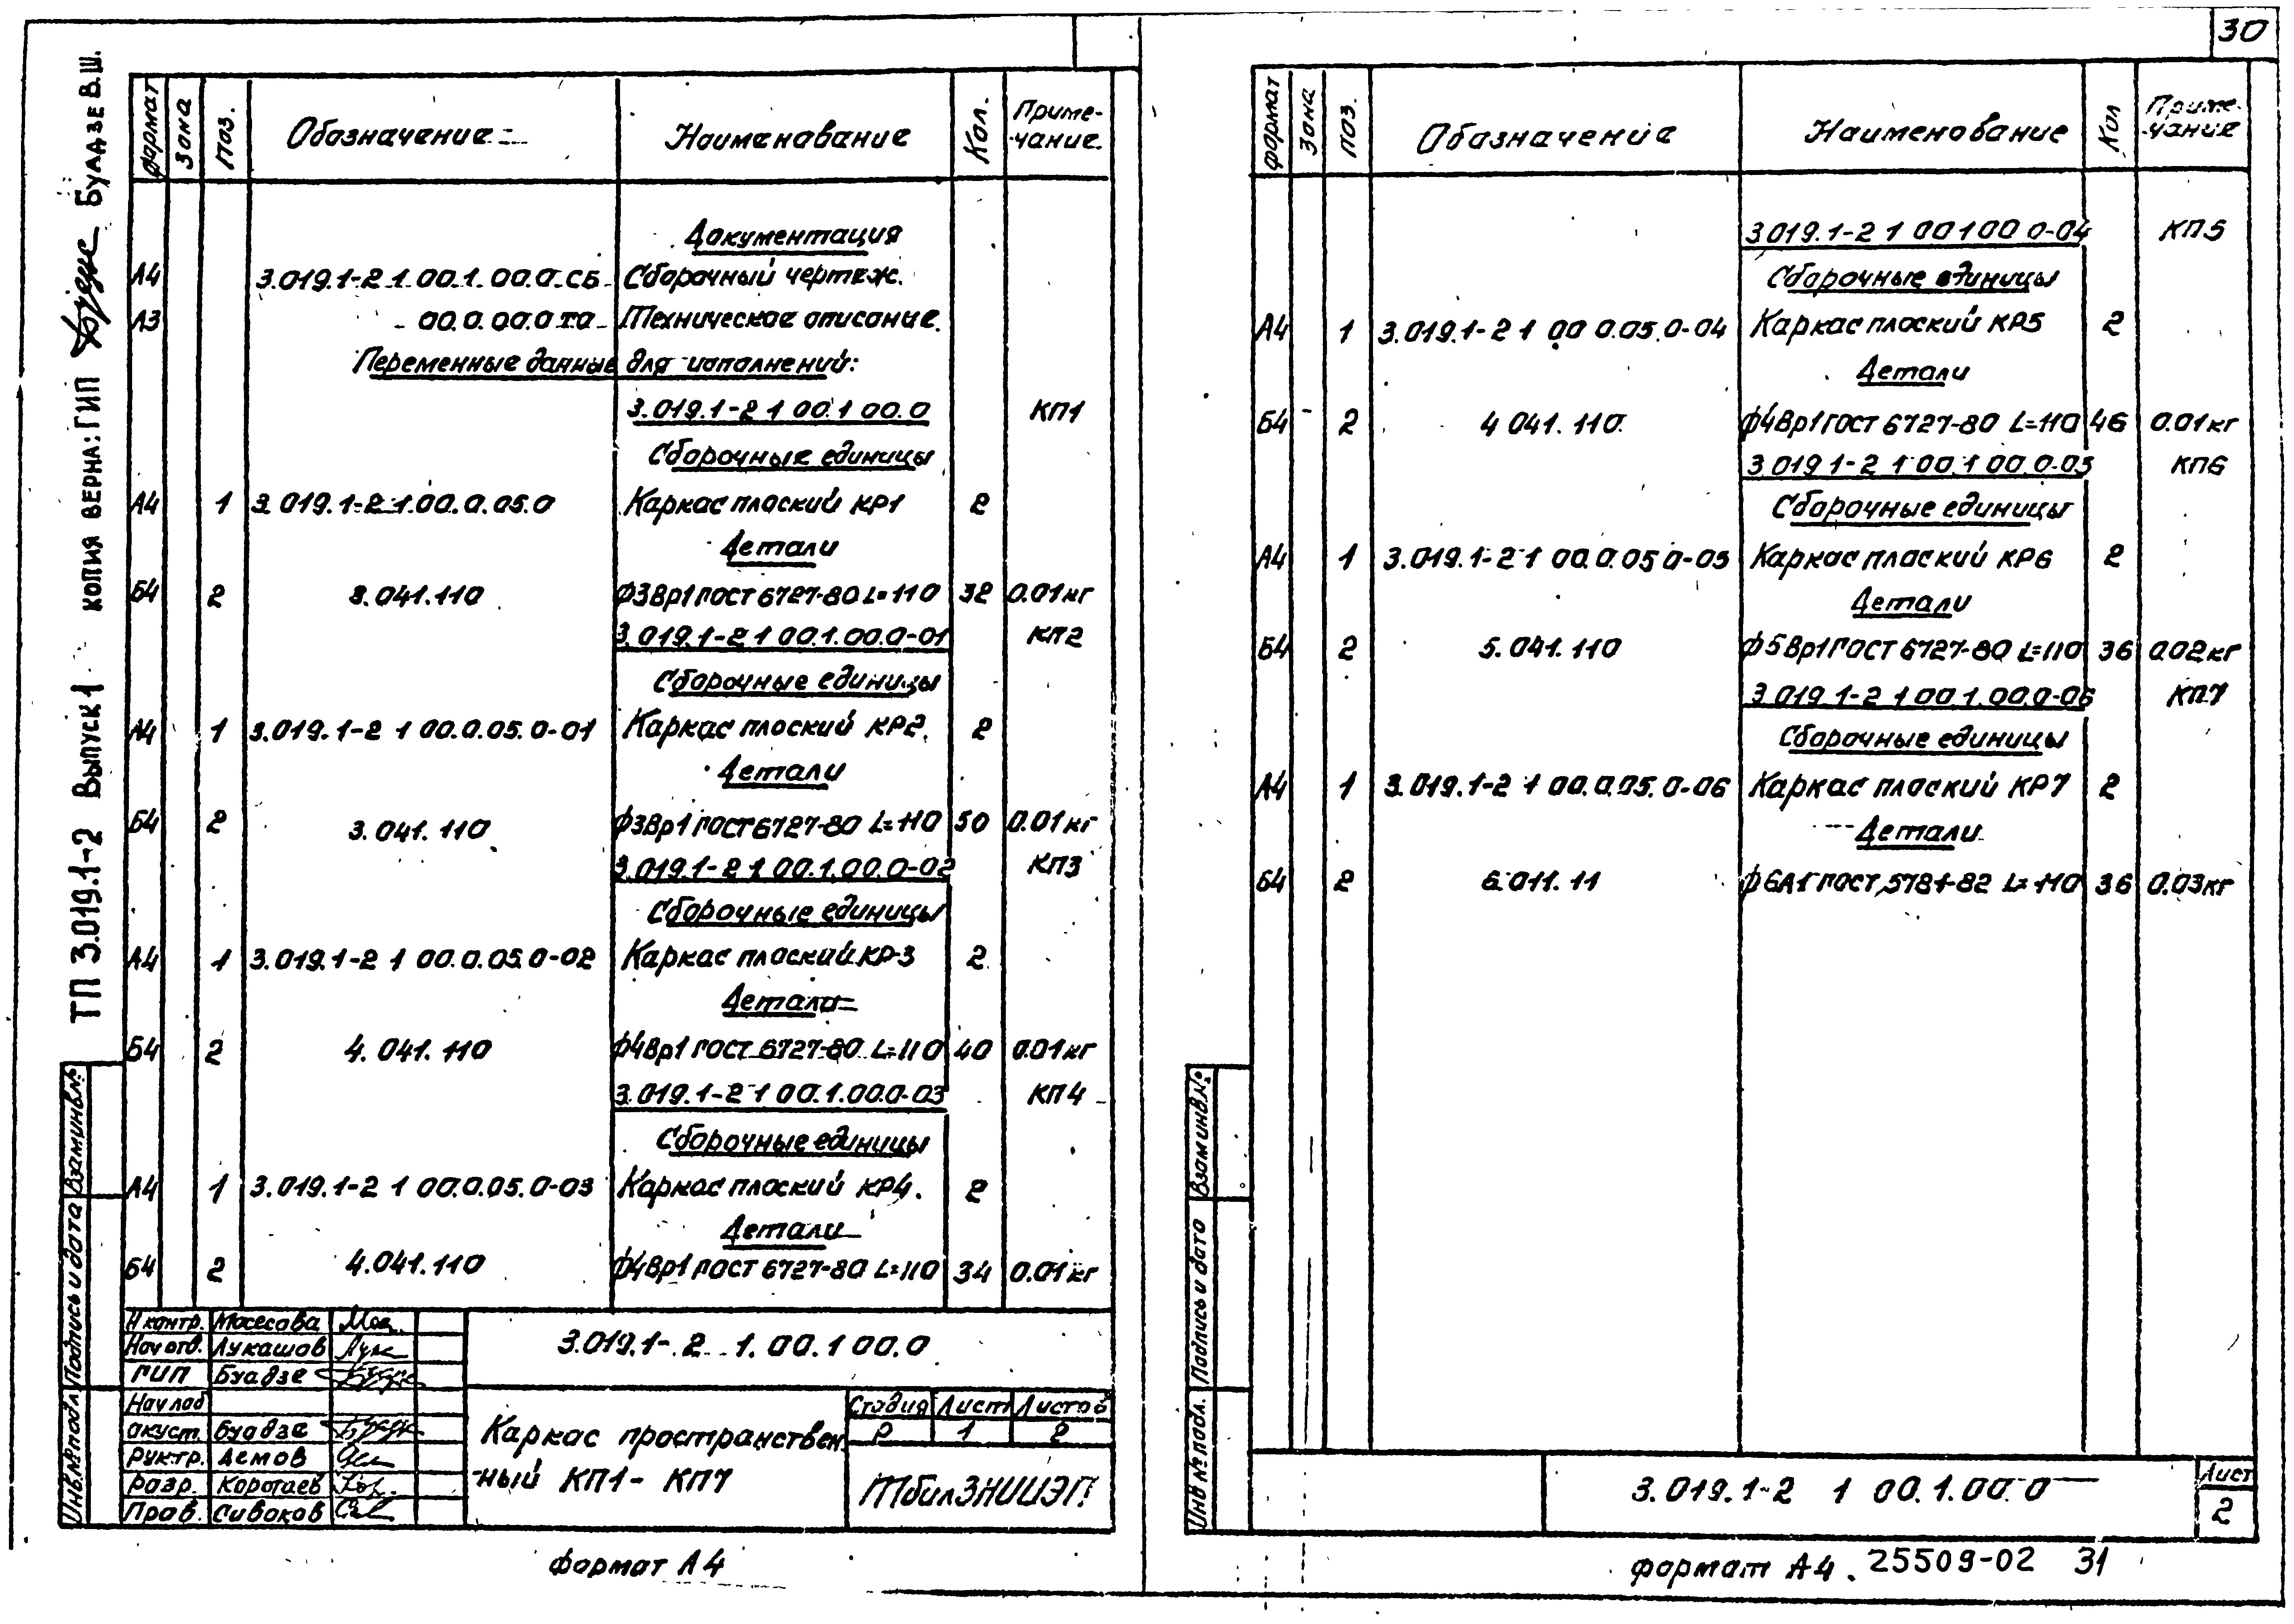 30
ТП 3.019.1-2 Выпуск 1 КОПИЯ ВЕРНА: ГИП БУАДЗЕ В.Ш.
Формат Зона Поз. Обозначение Наименование Кол. Приме-
чание.
Документация
А4 3.019.1-2 1 00.1.00.0 СБ Сборочный чертеж.
А3 00.0.00.0 ТО Техническое описание.
Переменные данные для исполнений:
3.019.1-2 1 00.1 00.0 КП1
Сборочные единицы
А4 1 3.019.1-2 1.00.0.05.0 Каркас плоский КР1 2
Детали
Б4 2 3.041.110 ф3Вр1 ГОСТ 6727-80 L=110 32 0.01кг
3.019.1-2 1 00.1.00.0-01 КП2
Сборочные единицы
А4 1 3.019.1-2 1 00.0.05.0-01 Каркас плоский КР2. 2
Детали
Б4 2 3.041.110 ф3Вр1 ГОСТ 6727-80 L=110 50 0.01кг
3.019.1-2 1 00.1.00.0-02 КП3
Сборочные единицы
А4 1 3.019.1-2 1 00.0.05.0-02 Каркас плоский КР-3 2
Детали
Б4 2 4.041.110 ф4Вр1 ГОСТ 6727-80 L=110 40 0.01кг
3.019.1-2 1 00.1.00.0-03 КП4
Сборочные единицы
А4 1 3.019.1-2 1 00.0.05.0-03 Каркас плоский КР4. 2
Детали
Б4 2 4.041.110 ф4Вр1 ГОСТ 6727-80 L=110 34 0.01кг
Инв.№подл. Подпись и дата Взам.инв.№
Н контр. Мосесова
Нач отд. Лукашов
ГИП Буадзе
Нач лаб
акуст. Буадзе
Рук гр. Демов
Разр. Коротаев
Пров. Сивоков
3.019.1-2 1.00.1 00.0
Каркас пространствен-
ный КП1- КП7
Стадия Лист Листов
Р 1 2
ТбилЗНИИЭП
Формат А4
Формат Зона Поз. Обозначение Наименование Кол Приме-
чание
3.019.1-2 1 00 1 00 0-04 КП5
Сборочные единицы
А4 1 3.019.1-2 1 00 0.05.0-04 Каркас плоский КР5 2
Детали
Б4 2 4 041.110. ф4Вр1 ГОСТ 6727-80 L=110 46 0.01кг
3.019 1-2 1 00.1 00.0-05 КП6
Сборочные единицы
А4 1 3.019.1-2 1 00.0.05 0-05 Каркас плоский КР6 2
Детали
Б4 2 5.041.110 ф5Вр1 ГОСТ 6727-80 L=110 36 0.02кг
3.019.1-2 1 00.1.00.0-06 КП7
Сборочные единицы
А4 1 3.019.1-2 1 00.0.05.0-06 Каркас плоский КР7 2
Детали
Б4 2 6.011.11 ф6А1 ГОСТ 5781-82 L=110 36 0.03кг
Инв № подл. Подпись и дата Взам инв.№
3.019.1-2 1 00.1.00.0
Лист
2
Формат А4. 25509-02 31